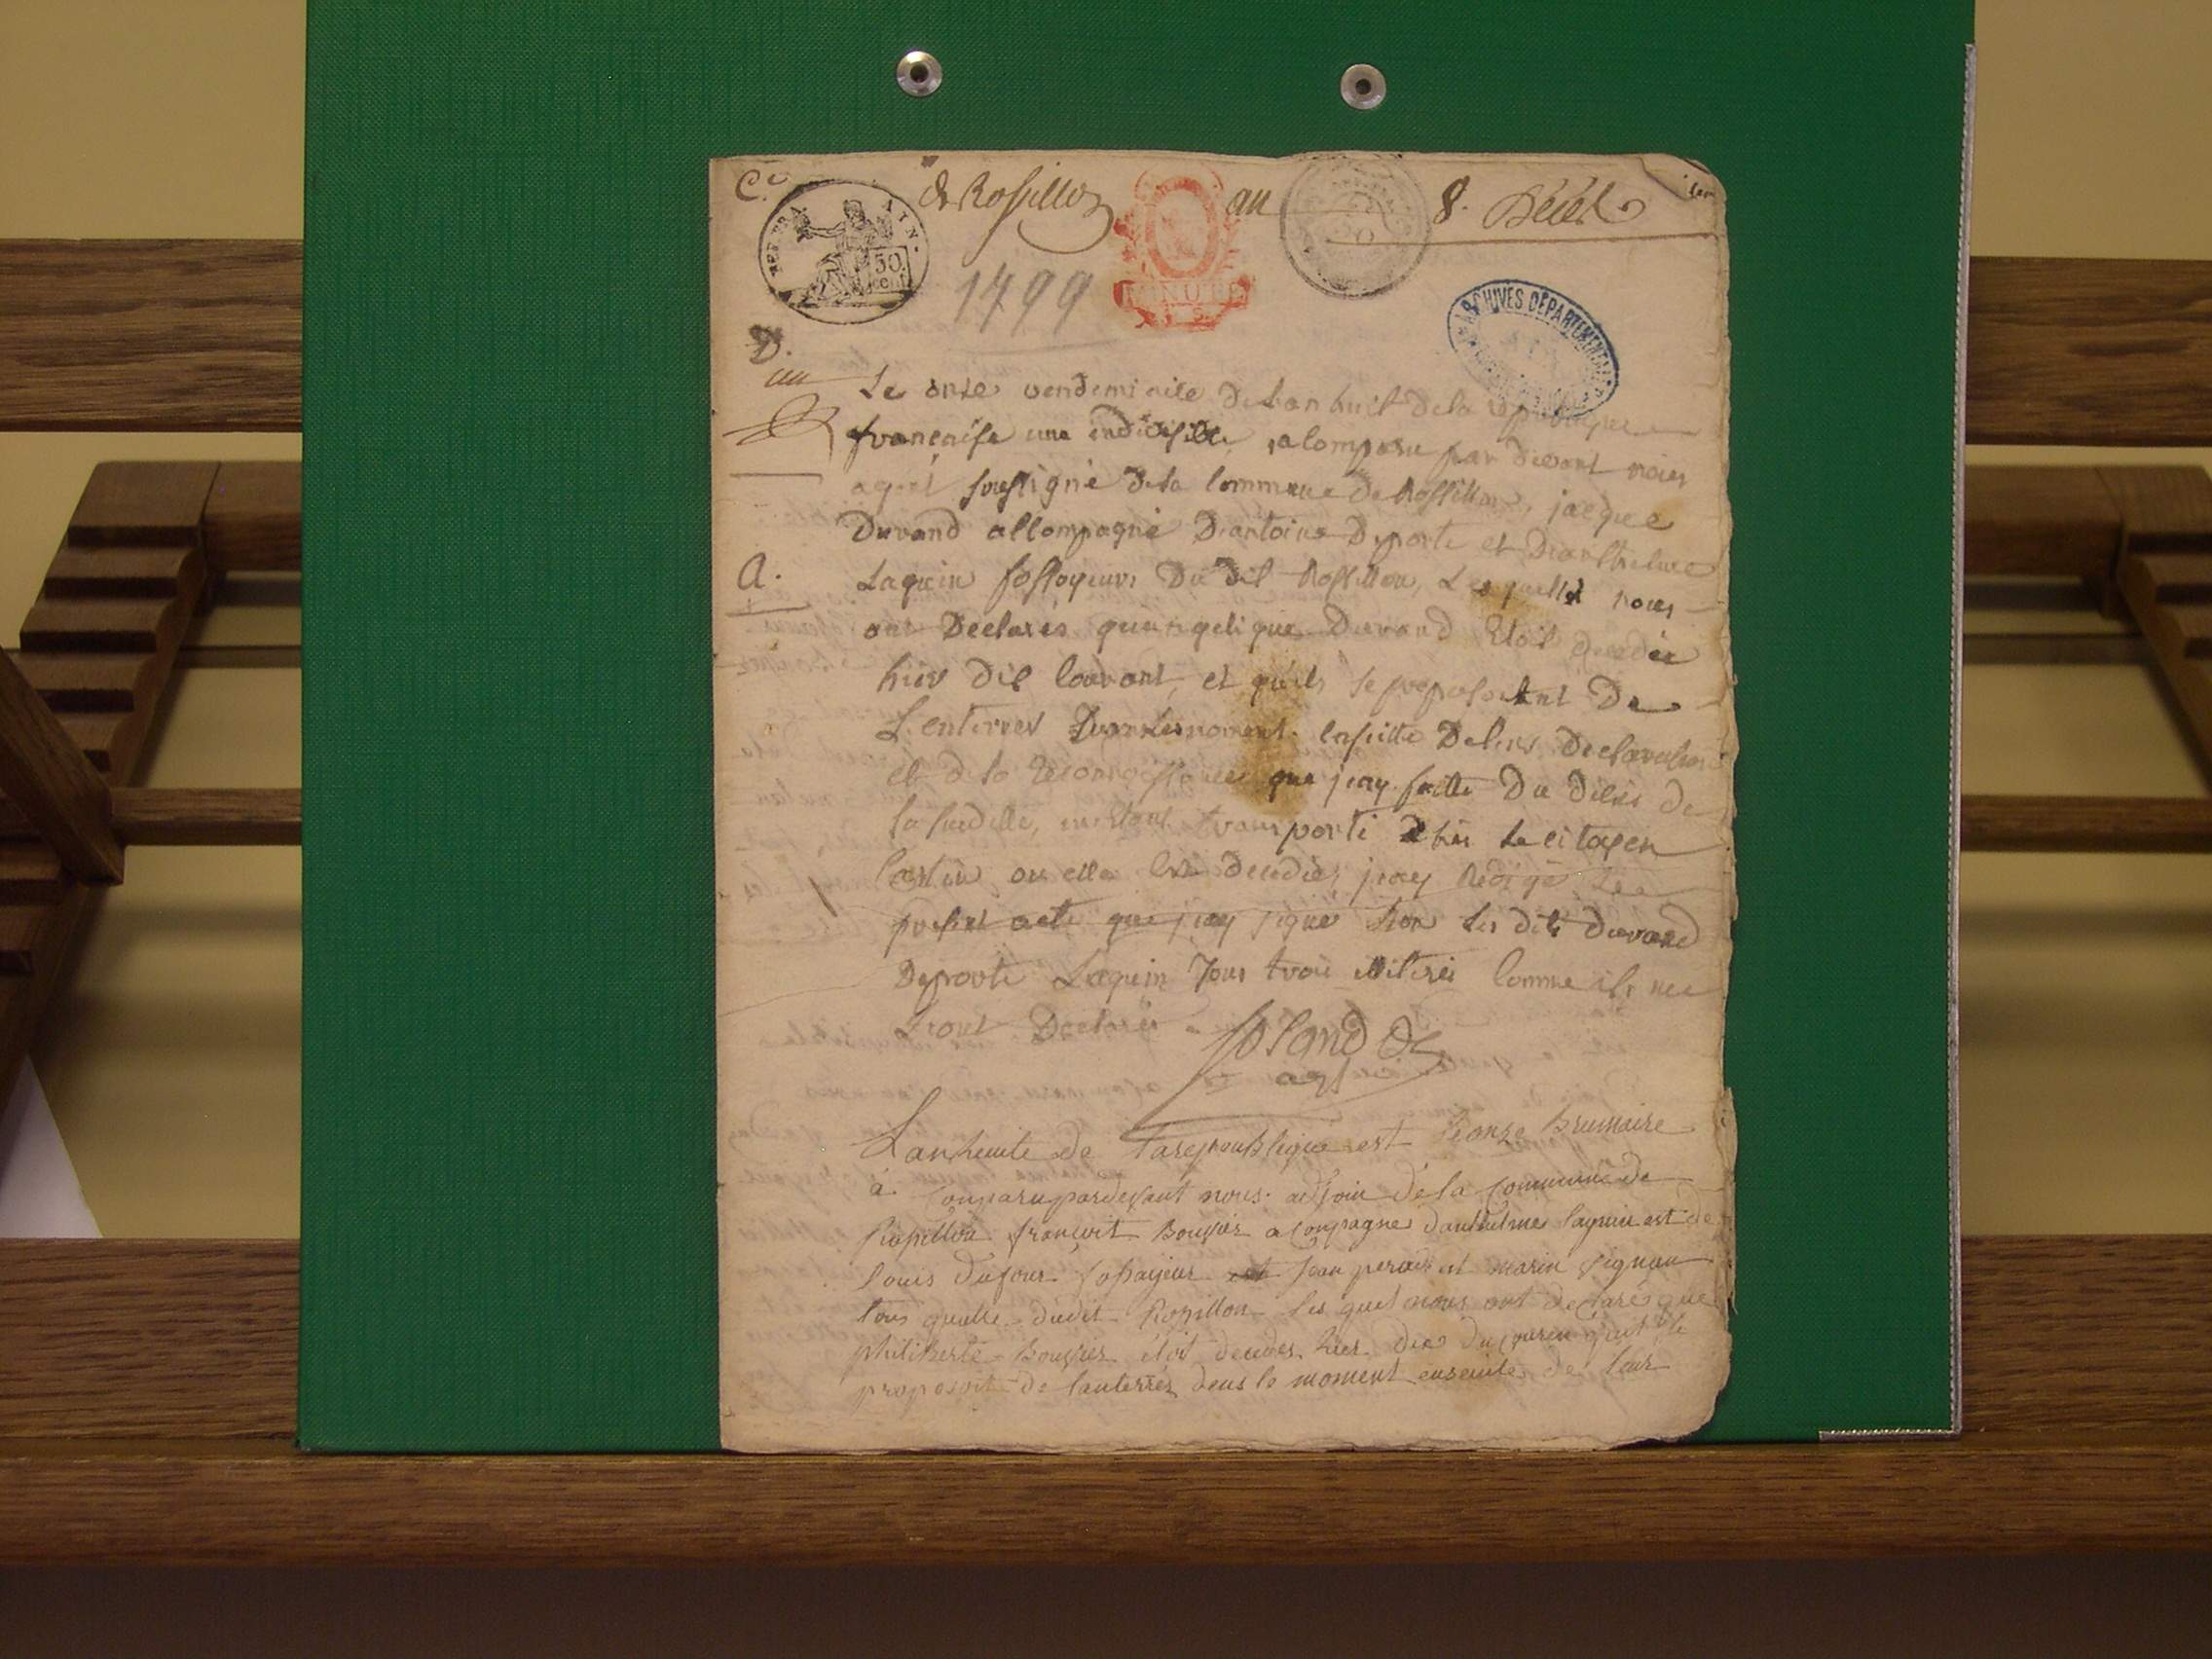 Ce de Rossillon an 8. Décès
AIN.
50
cent
1799
MINUTE
ARCHIVES DÉPARTEMENTALES
D.
Le onze vendemiaire De Lan huit De la republique
francaise une indivisible, a Comparu par devant nous
agent sousigné De la Commune De Rossillon, jacque
Durand accompagné D'antoine Deporte et D'anthelme
A.
Laquin fossoyeurs Du dit Rossillon, Lesquells nous
ont Declarés qu'angelique Durand Etoit decedée
hier dix Courant, et quils se proposoient De
L'enterrer ensuitte De leurs Declarations
et de la reconnoissance que jeay faitte Du décès de
la susditte, m'etant transporté Chés Le citoyen
ou elle Est decedée, jeay Redigé Le
present acte que jeay signé Non les dits durand
Deporte Laquin Tous trois illiterés Comme ils me
Lront Declarés
agt
Lanhuite de larepoublique est leonze brumaire
à Conparu pardevant nous adjoin de la Commune de
Rossillon françoit Bouvier aconpagne danthelme laquin est de
louis dufour fossayeur est Jean et marin
tous quatre dudit Rossillon les quel nous ont declaré que
philiberte Bouvier étoit decedes hier dix du courin quil se
proposoit de lanterrer dens le moment ensuite de leur